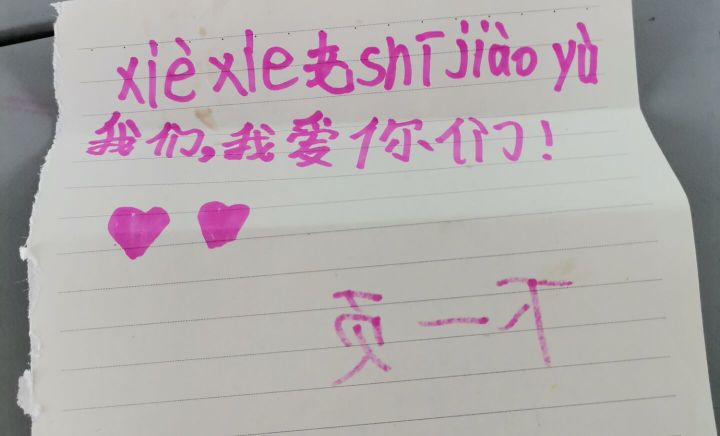 xièxie老shī jiào yù
我们,我爱你们!
下一页